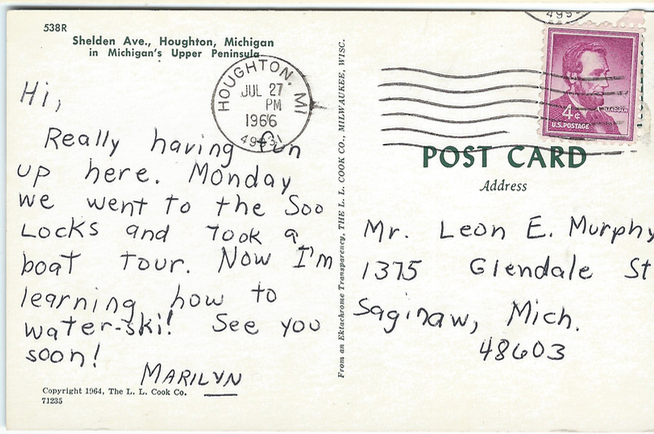 538R
Shelden Ave., Houghton, Michigan
in Michigan's Upper Peninsula
HOUGHTON, MI
JUL 27
PM
1966
4¢
U.S. POSTAGE
Hi,
Really having fun
up here. Monday
we went to the Soo
Locks and took a
boat tour. Now I'm
learning how to
water-ski! See you
soon!
MARILYN
Copyright 1964, The L. L. Cook Co.
71235
From an Ektachrome Transparency, THE L. L. COOK CO., MILWAUKEE, WISC.
POST CARD
Address
Mr. Leon E. Murphy
1375 Glendale St
Saginaw, Mich.
48603